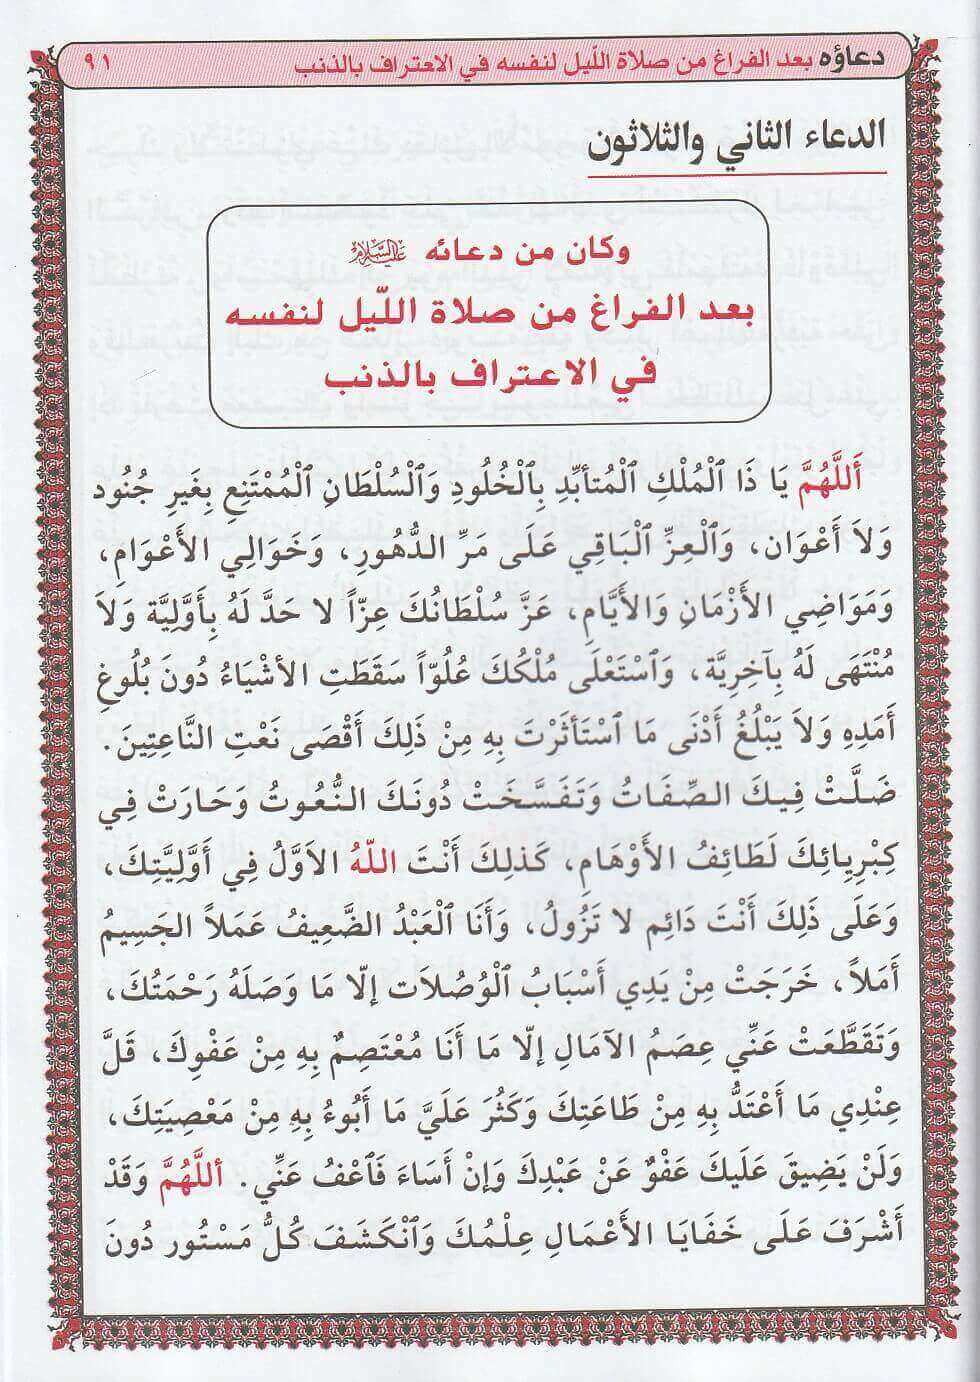 دعاؤه بعد الفراغ من صلاة اللّيل لنفسه في الاعتراف بالذنب ٩١
الدعاء الثاني والثلاثون
وكان من دعائه عليه السلام
بعد الفراغ من صلاة اللّيل لنفسه
في الاعتراف بالذنب
أَللَّهُمَّ يَا ذَا ٱلْمُلْكِ ٱلْمُتأبِّدِ بِٱلْخُلُودِ وَٱلْسُلْطَانِ ٱلْمُمْتَنِعِ بِغَيرِ جُنُود
وَلاَ أَعْوَان، وَٱلْعِزِّ ٱلْبَاقِي عَلَى مَرِّ الدُّهُورِ، وَخَوَالِي الأَعْوَامِ،
وَمَوَاضِي الأَزْمَانِ وَالأَيَّامِ، عَزَّ سُلْطَانُكَ عِزّاً لا حَدَّ لَهُ بِأَوَّلِيَّة وَلاَ
مُنْتَهَى لَهُ بِآخِرِيَّة، وَٱسْتَعْلَى مُلْكُكَ عُلُوّاً سَقَطَتِ الأشْيَاءُ دُونَ بُلُوغِ
أَمَدِهِ وَلاَ يَبْلُغُ أَدْنَى مَا ٱسْتَأثَرْتَ بِهِ مِنْ ذَلِكَ أَقْصَى نَعْتِ النَّاعِتِينَ.
ضَلَّتْ فِيكَ الصِّفَاتُ وَتَفَسَّخَتْ دُونَكَ النُّعُوتُ وَحَارَتْ فِي
كِبْرِيائِكَ لَطَائِفُ الأَوْهَامِ، كَذلِكَ أَنْتَ اللّهُ الاَوَّلُ فِي أَوَّلِيَّتِكَ،
وَعَلَى ذَلِكَ أَنْتَ دَائِم لا تَزُولُ، وَأَنَا ٱلْعَبْدُ الضَّعِيفُ عَمَلاً الجَسِيمُ
أَمَلاً، خَرَجَتْ مِنْ يَدِي أَسْبَابُ ٱلْوُصُلاَت إلّا مَا وَصَلَهُ رَحْمَتُكَ،
وَتَقَطَّعَتْ عَنِّي عِصَمُ الآمَالِ إلّا مَا أَنَا مُعْتَصِمٌ بِهِ مِنْ عَفْوِكَ، قَلَّ
عِنْدِي مَا أَعْتَدُّ بِهِ مِنْ طَاعَتِكَ وَكَثُرَ عَلَيَّ مَا أَبُوءُ بِهِ مِنْ مَعْصِيَتِكَ،
وَلَنْ يَضِيقَ عَلَيكَ عَفْوٌ عَنْ عَبْدِكَ وَإنْ أَسَاءَ فَٱعْفُ عَنِّي. أللَّهُمَّ وَقَدْ
أَشْرَفَ عَلَى خَفَايَا الأَعْمَالِ عِلْمُكَ وَٱنْكَشَفَ كُلُّ مَسْتُور دُونَ